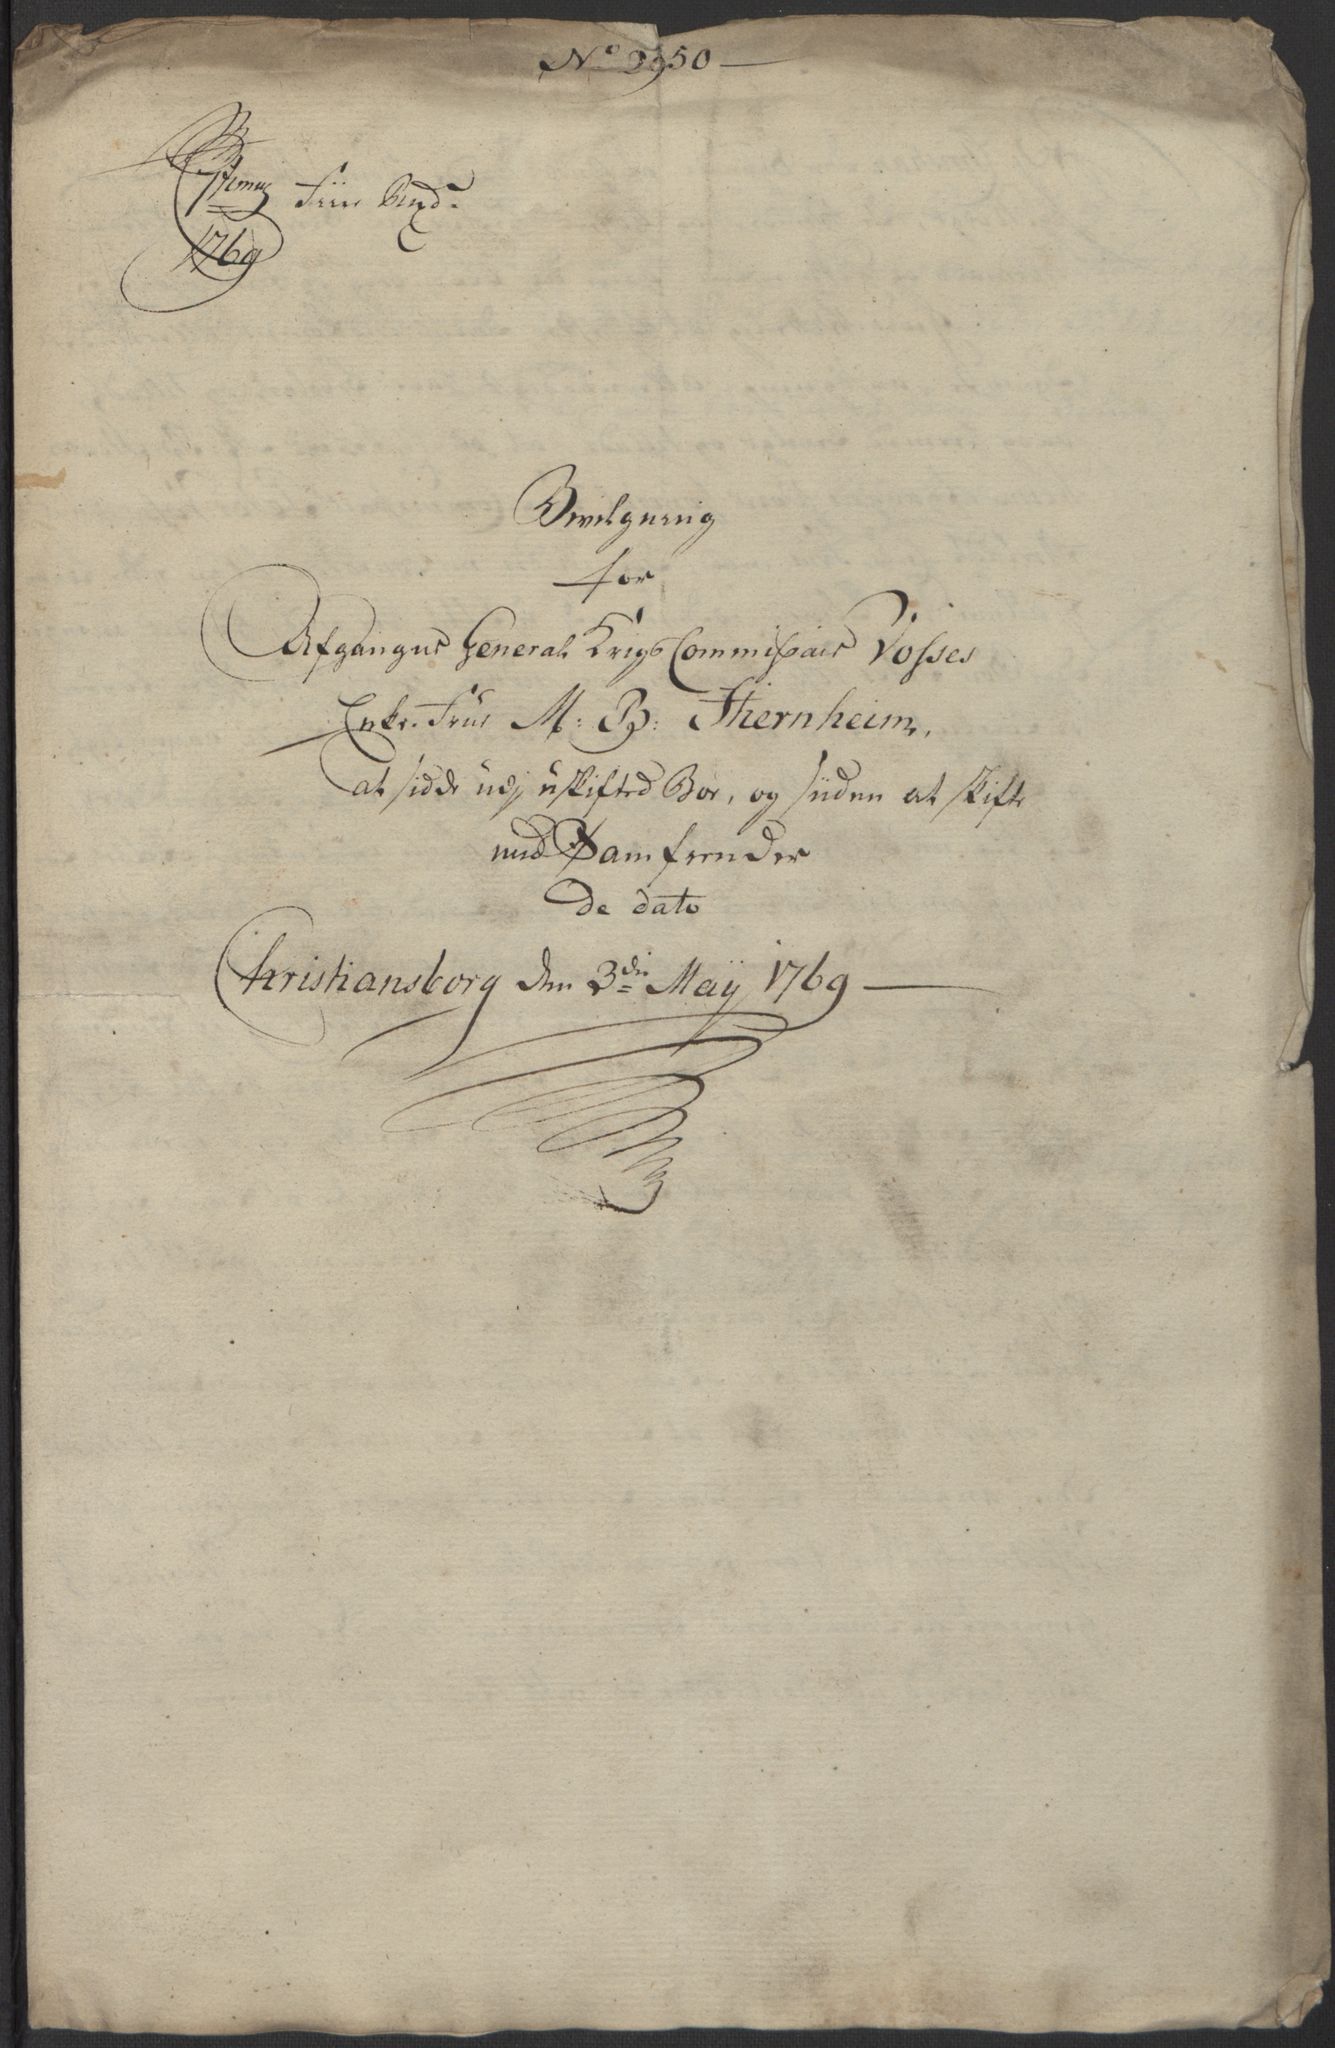 No 2950
1769
Bevilgning
for
Afgangne General Krigs Commissair Vosses
Enke Frue M: B: Stiernheim,
at sidde udj uskifted Boe, og siden at skifte
med Samfrender
de dato
Christiansborg den 3die Maij 1769